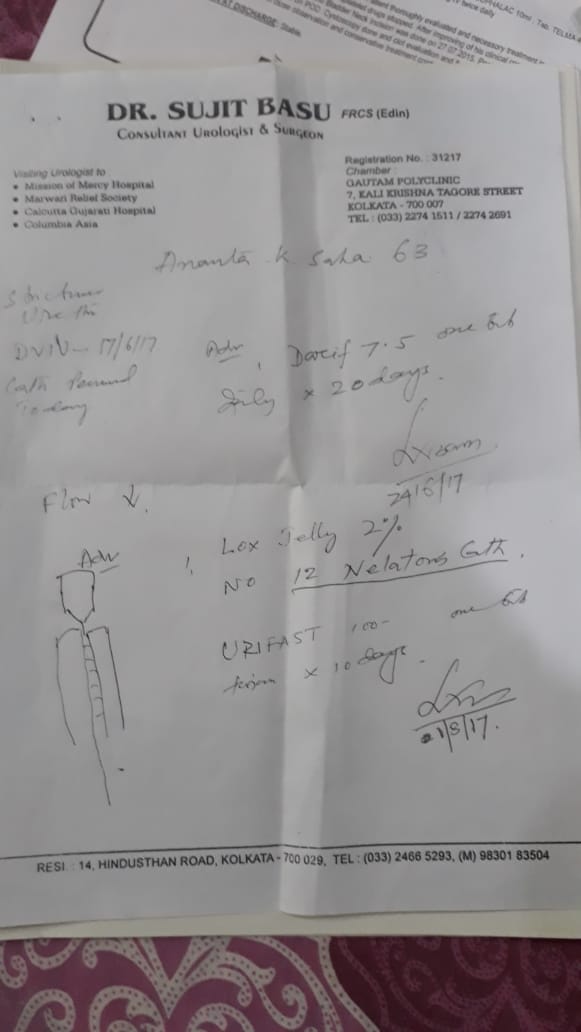 PHALAC 10ml : Tab. TELMA
twice daily
patient thoroughly evaluated and necessary treatment
drips stopped. After improving of his clinical
Bladder Neck Incision was done on 27.07.2015.
POD. Cystoscopy done and clot evaluation and
close observation and conservative treatment
AT DISCHARGE: Stable.
DR. SUJIT BASU FRCS (Edin)
CONSULTANT UROLOGIST & SURGEON
Visiting Urologist to
• Mission of Mercy Hospital
• Marwari Relief Society
• Calcutta Gujarati Hospital
• Columbia Asia
Registration No. : 31217
Chamber :
GAUTAM POLYCLINIC
7, KALI KRISHNA TAGORE STREET
KOLKATA - 700 007
TEL : (033) 2274 1511 / 2274 2691
Ananta K Saha 63
Stricture
Urethra
DVIU - 17/6/17
Cath Removed
Today
Adv
Darif 7.5 one tab
daily x 20 days.
24/6/17
Flow ↓.
Adv
Lox Jelly 2%
No 12 Nelatons Cath.
URIFAST 100 - one tab
x 10 days.
/8/17.
RESI. : 14, HINDUSTHAN ROAD, KOLKATA - 700 029, TEL : (033) 2466 5293, (M) 98301 83504